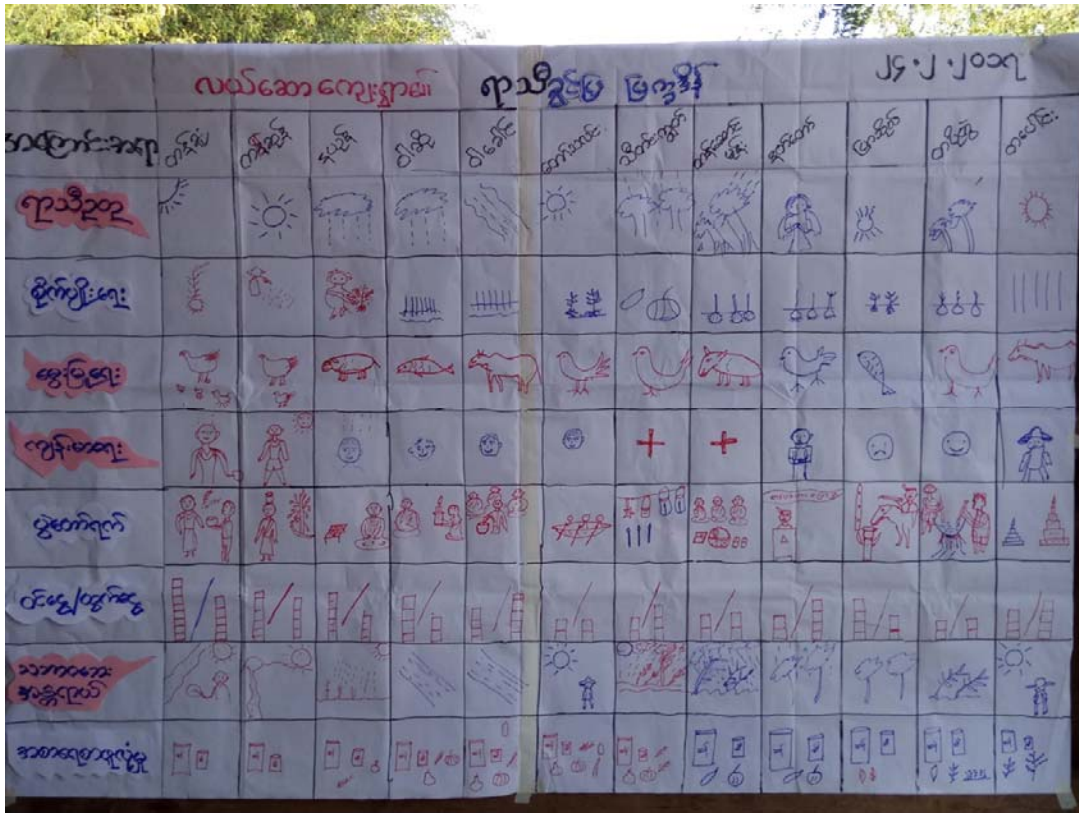 လယ်ဆော ကျေးရွာ၏ ရာသီခွင်ပြ ပြက္ခဒိန် ၂၄.၂.၂၀၁၇
အကြောင်းအရာ တန်ခူး ကဆုန် နယုန် ဝါဆို ဝါခေါင် တော်သလင်း သီတင်းကျွတ် တန်ဆောင်မုန်း နတ်တော် ပြာသို တပို့တွဲ တပေါင်း
ရာသီဥတု
စိုက်ပျိုးရေး
မွေးမြူရေး
ကျန်းမာရေး
ပွဲတော်ရက်
ဝင်ငွေ/ထွက်ငွေ
သဘာဝဘေး
အန္တရာယ်
အစားရေစာဖူလုံမှု